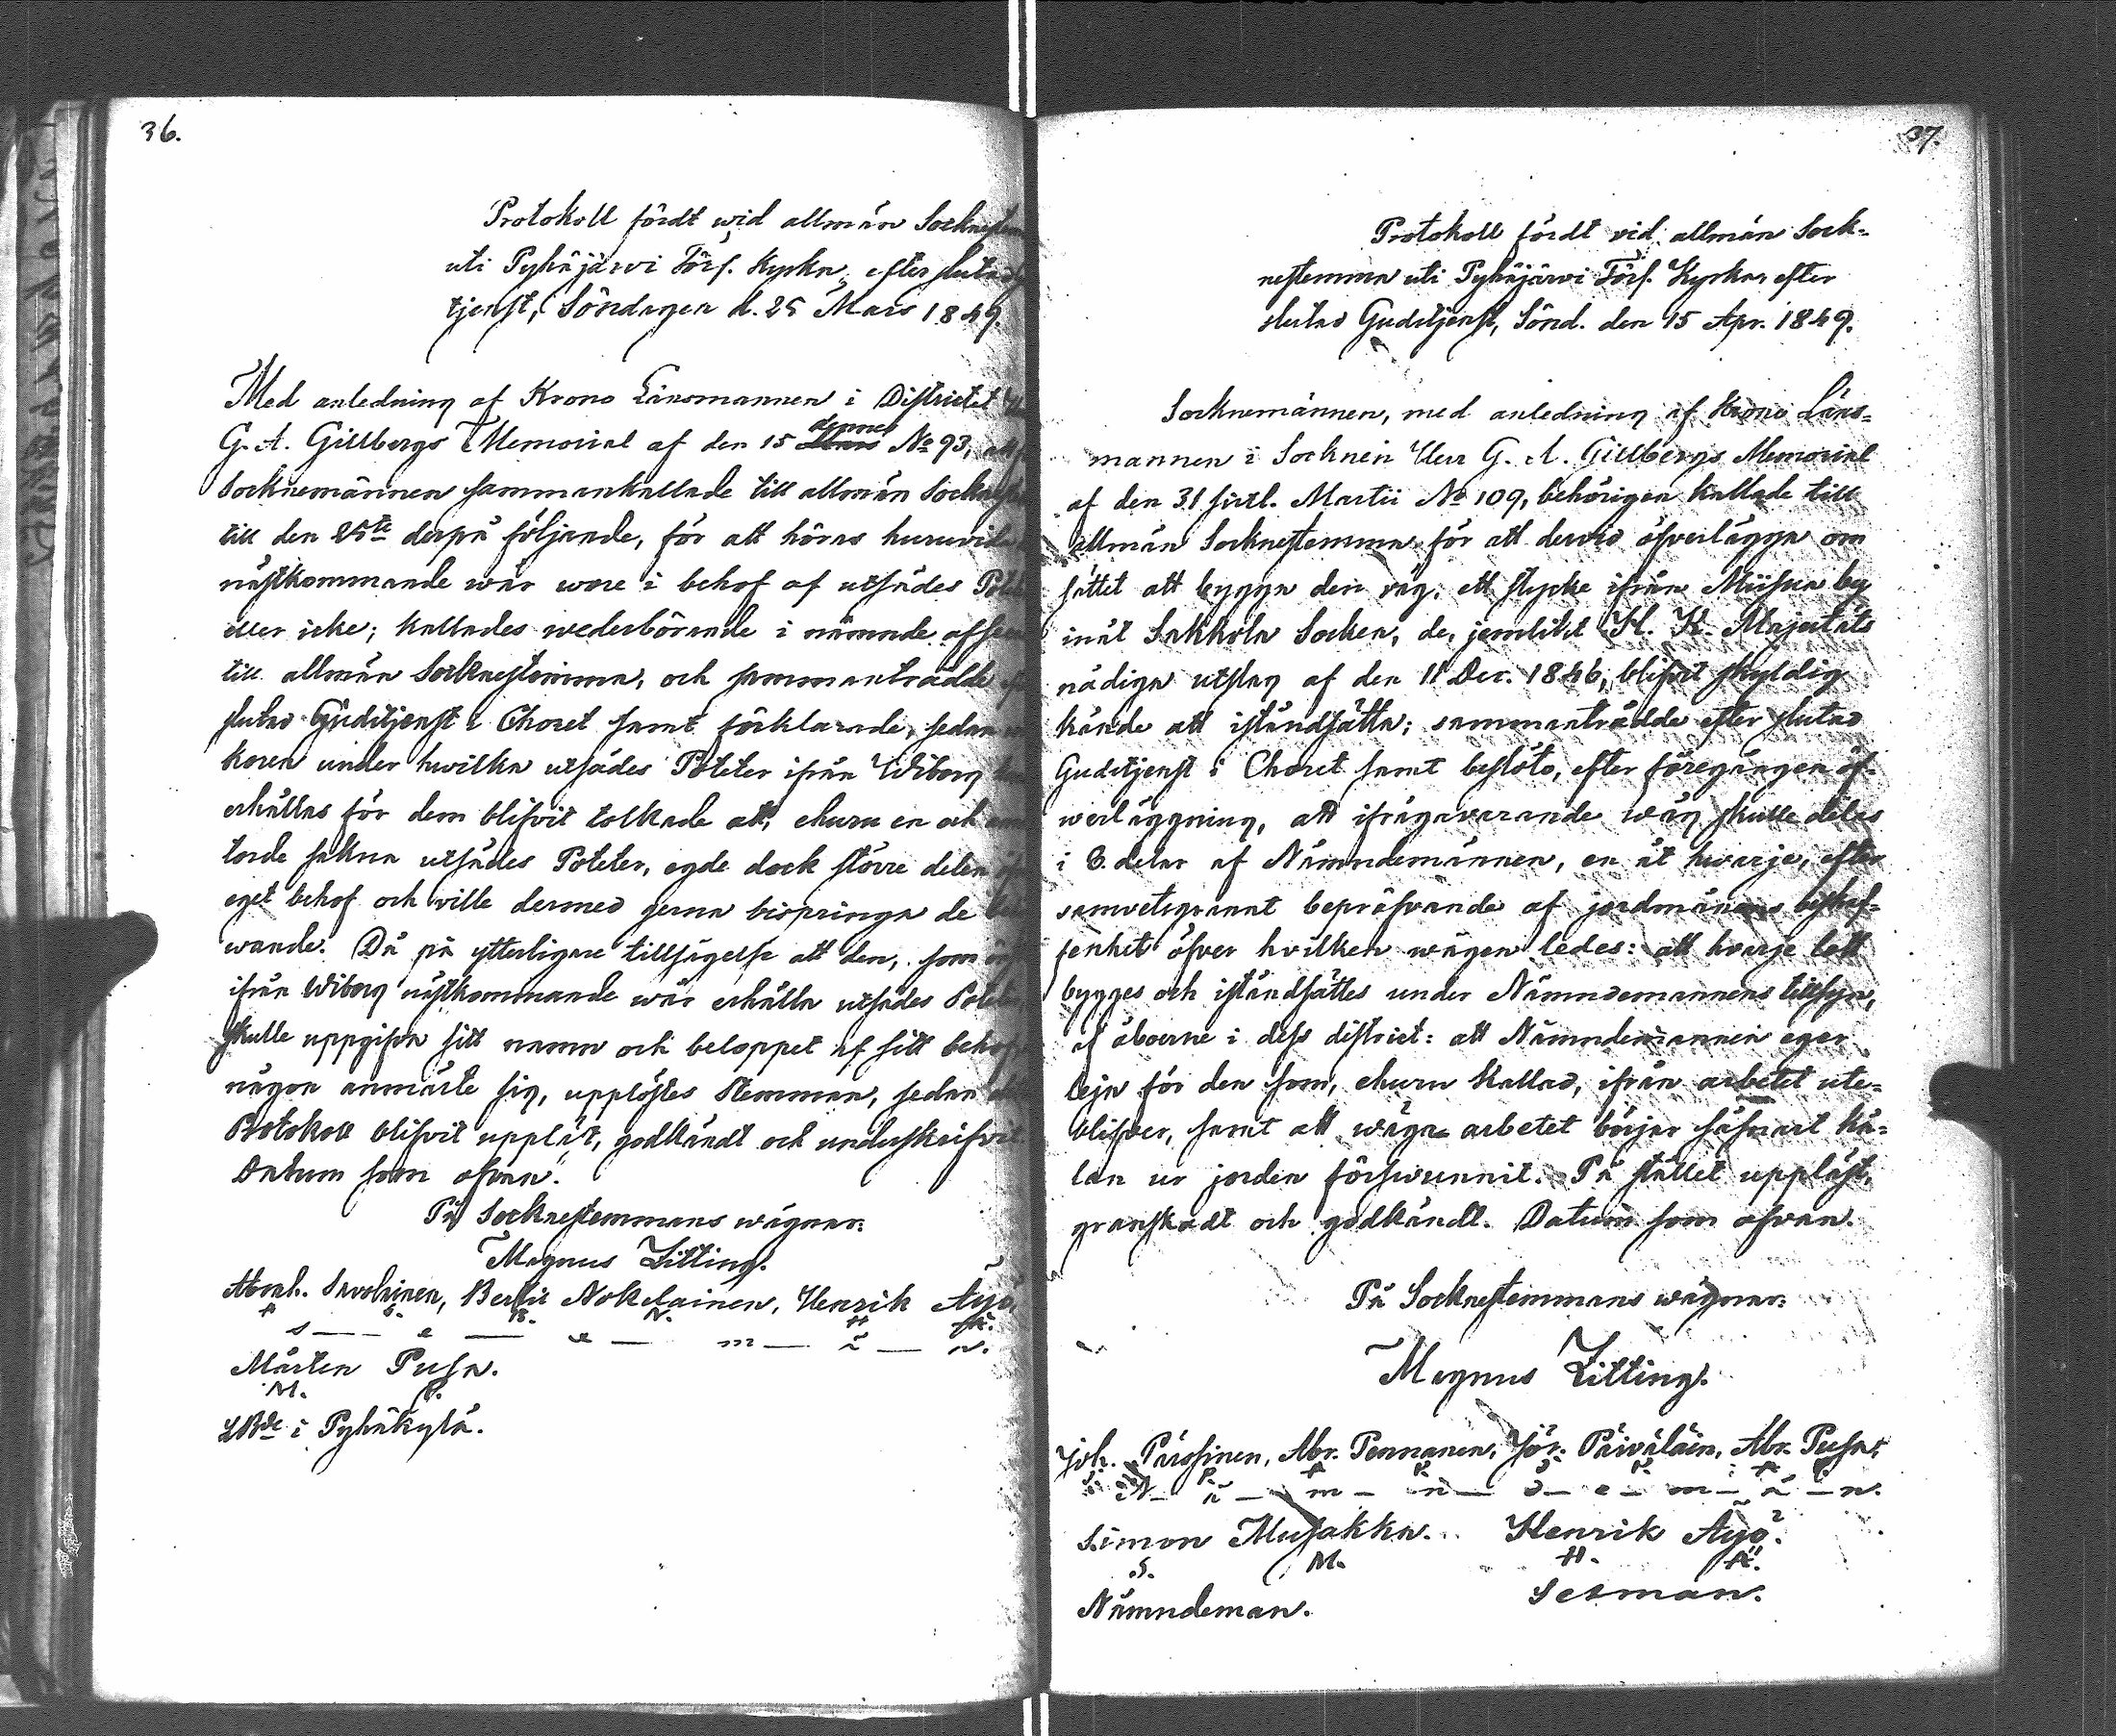 36.
Protokoll fördt wid allmän
uti Pyhäjärvi Förs. Kyrka, efter
tjenst, Söndagen d. 25 Mars 1849.
Med anledning af Krono Länsmannen i Districtet
G. A. Gillbergs Memorial af den 15 dennes No 93,
Socknemännen sammankallade till allmän
till den 25te derpå följande, för att höras
nästkommande wår wore i behof af utsädes
eller icke; kallades wederbörande i nämnde
till allmän Socknestemma, och sammanträdde
slutad Gudstjenst i Choret samt förklarade, sedan
koren under hwilka utsädes Poteter ifrån Wiborg
erhållas för dem blifvit tolkade att, ehuru en och
torde sakna utsädes Poteter, egde dock större delen
eget behof och ville dermed gerna bispringa de
wande. Då på ytterligare tillsägelse att den, som
ifrån Wiborg nästkommande wår erhålla utsädes
skulle uppgifva sitt namn och beloppet af sitt
någon anmälte sig, upplöstes Stemman, sedan
Protokoll blifvit uppläst, godkändt och
Datum som ofvan.
På Socknestemmans wägnar:
Magnus Zitting.
Abrah. Savolainen, Bertil Nokelainen, Henrik Äyö,
A. S. B. N. H. Ä.
s — e — x — m — ä — n.
Mårten Pusa.
M. P.
i Pyhäkylä.
37.
Protokoll fördt vid allmän Sock-
nestemma uti Pyhäjärvi Förs. Kyrka, efter
slutad Gudstjenst, Sönd. den 15 Apr. 1849.
Socknemännen, med anledning af Krono Läns-
mannen i Socknen Herr G. A. Gillbergs Memorial
af den 31 sistl. Martii No 109, behörigen kallade till
allmän Socknestemma för att dervid öfverlägga om
sättet att bygga den väg, ett stycke ifrån Miisua by
inåt Sakkola Socken, de, jemlikt H. K. Majestäts
nådiga utslag af den 11 Dec. 1846, blifvit skyldig
kände att iståndsätta; sammanträdde efter slutad
Gudstjenst i Choret samt beslöto, efter föregången öf-
werläggning, att ifrågavarande wäg skulle delas
i 6 delar af Nämndemännen, en åt hwarje, efter
samvetsgrannt bepröfvande af jordmånens beskaf-
fenhet öfver hvilken wägen ledes: att hvarje lott
bygges och iståndsättes under Nämndemannens tillsyn,
af åboerne i dess district: att Nämndemannen eger
leja för den som, ehuru kallad, ifrån arbetet ute-
blifver, samt att wäga arbetet börjar såsnart kä-
lan ur jorden försvunnit. På stället uppläst,
granskadt och godkändt. Datum som ofvan.
På Socknestemmans wägnar:
Magnus Zitting.
Joh. Pärssinen, Abr. Pennanen, Jör. Päiväläin, Abr. Pusa,
J. P. A. P. J. P. A. P.
N — ä — m — n — d — e — m — ä — n.
Simon Musakka. Henrik Äyö.
S. M. H. Ä.
Nämndeman. Sexman.